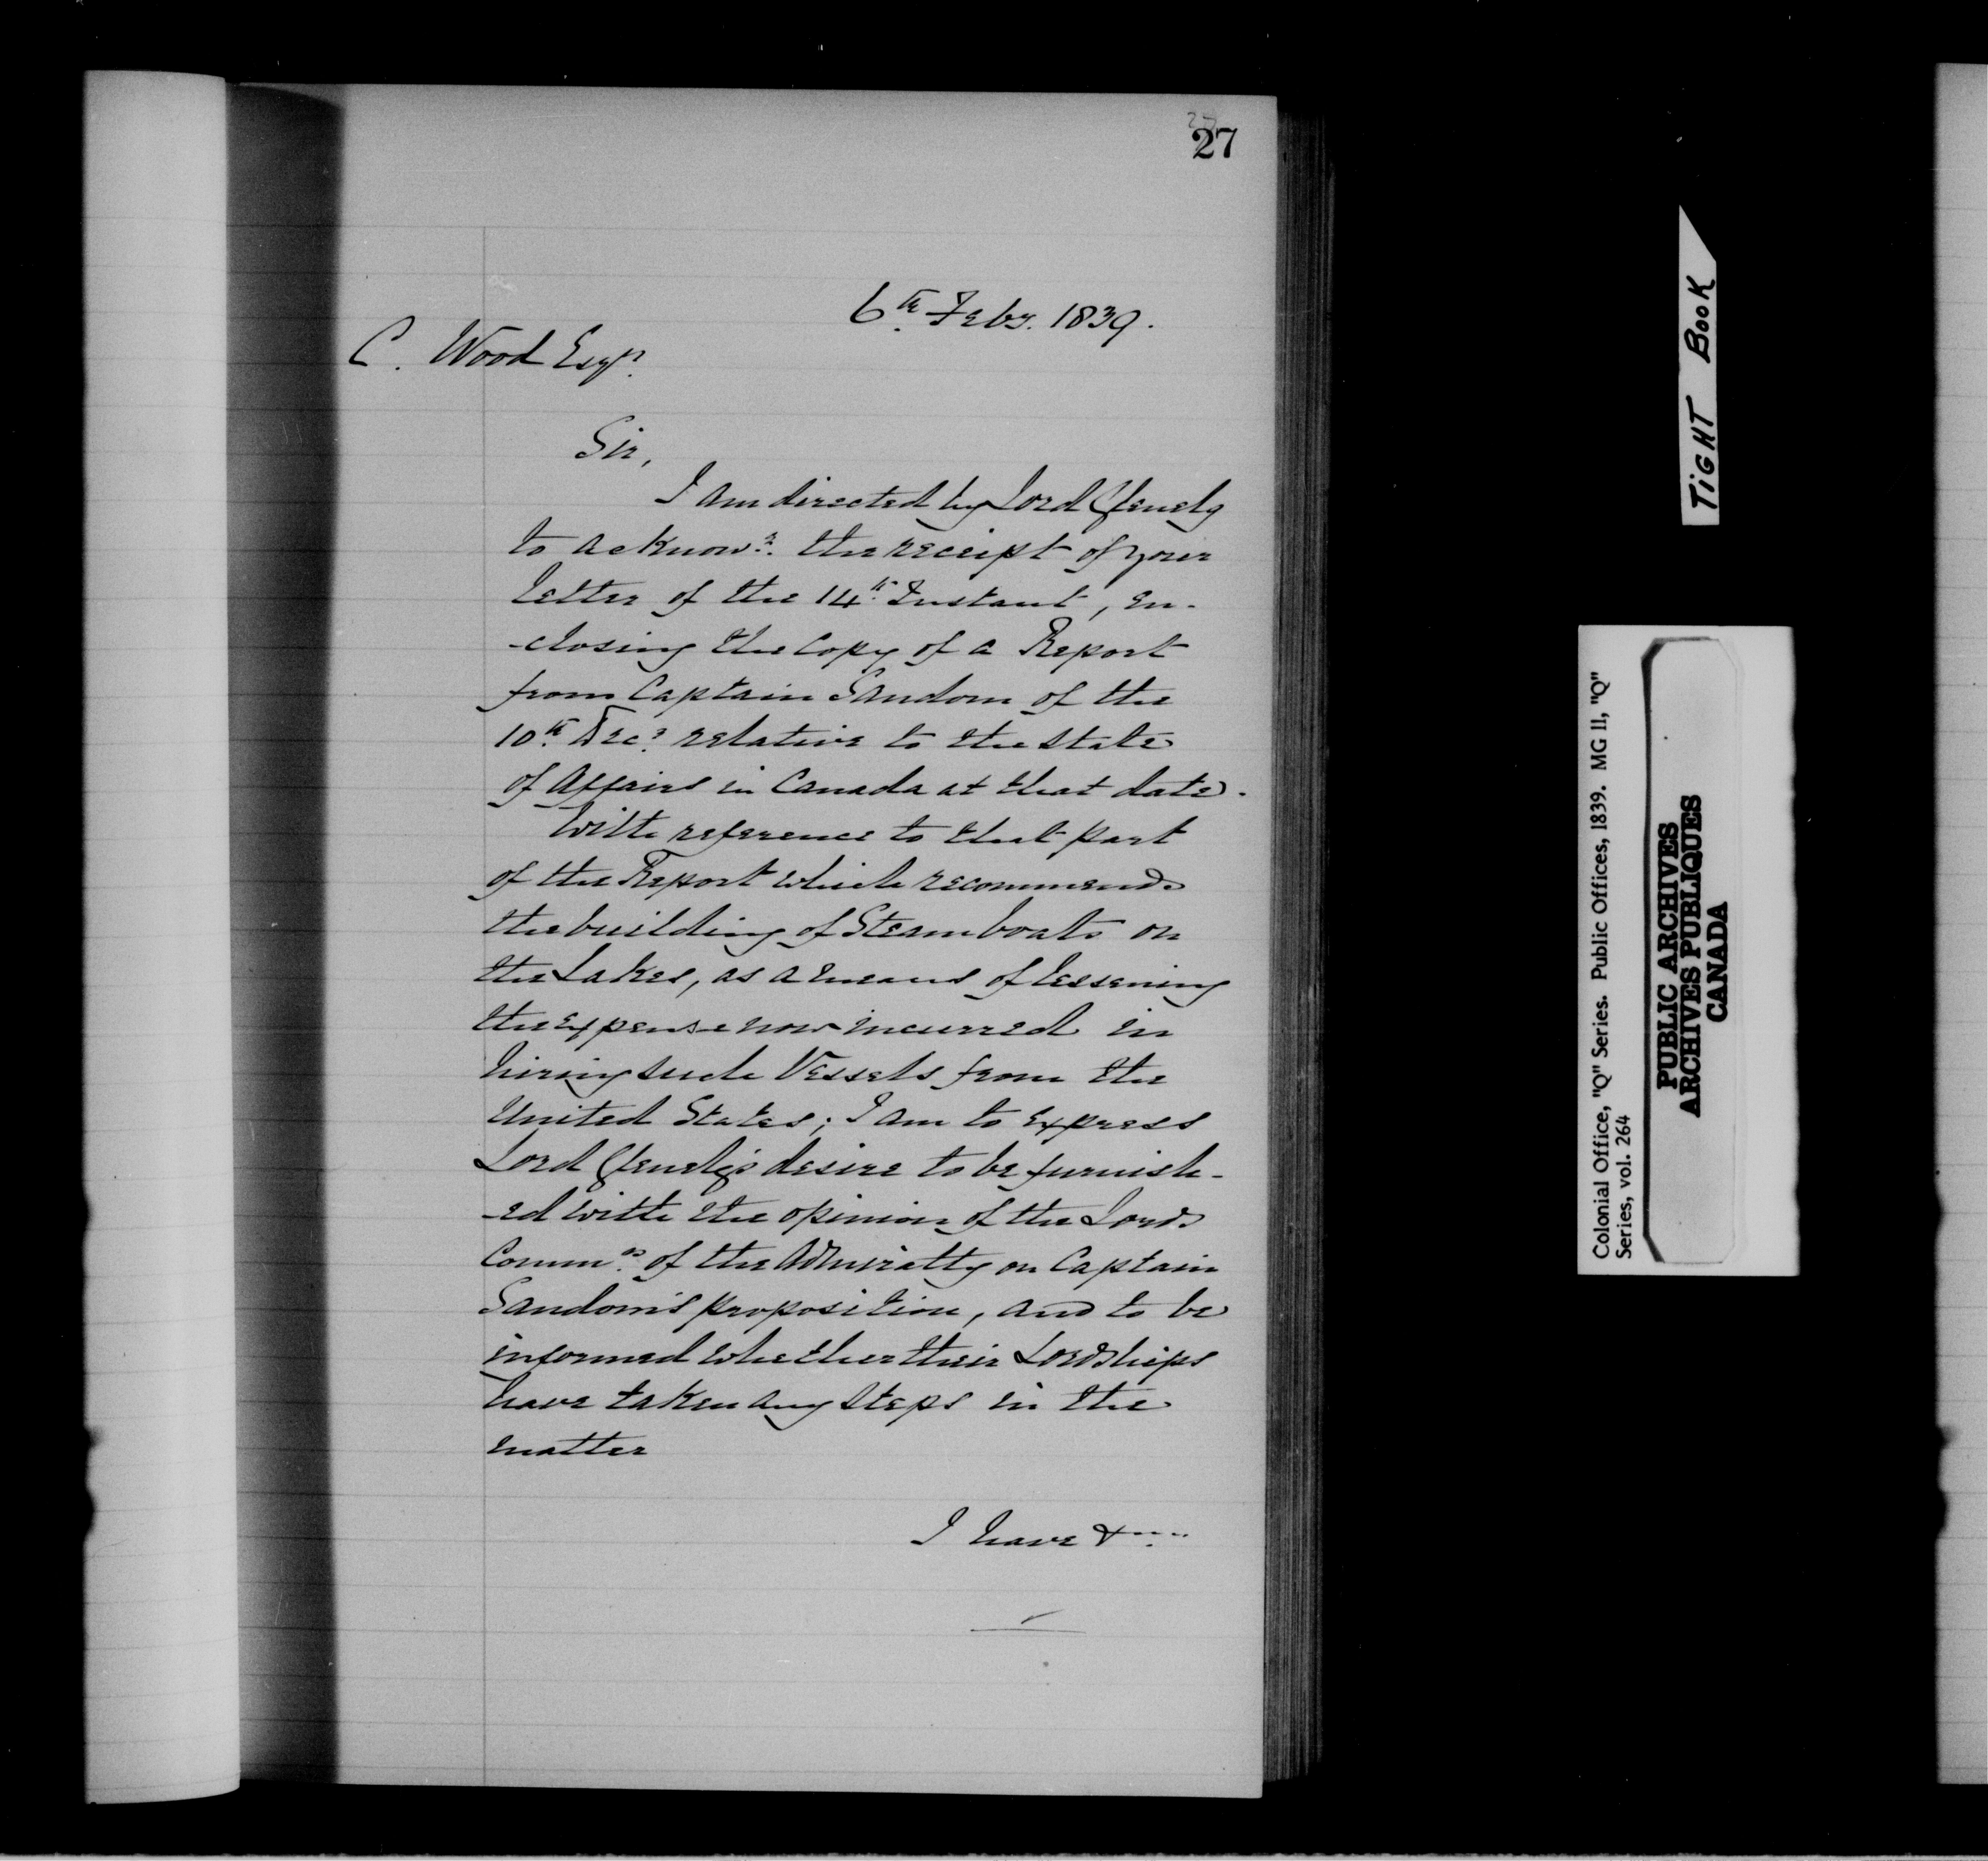 27
27
6th Feby. 1839.
C. Wood Esqr.
Sir,
I am directed by Lord Glenelg
to acknowe. the receipt of your
letter of the 14th Instant, en-
-closing the copy of a Report
from Captain Sandom of the
10th Decr. relative to the state
of Affairs in Canada at that date.
With reference to that part
of the Report which recommends
the building of Steamboats on
the Lakes, as a means of lessening
the expense now incurred in
hiring such Vessels from the
United States; I am to express
Lord Glenelg's desire to be furnish-
-ed with the opinion of the Lords
Commrs. of the Admiralty on Captain
Sandom's proposition, and to be
informed whether their Lordships
have taken any steps in the
matter
I have &
TIGHT BOOK
Colonial Office, "Q" Series. Public Offices, 1839. MG 11, "Q"
Series, vol. 264
PUBLIC ARCHIVES
ARCHIVES PUBLIQUES
CANADA